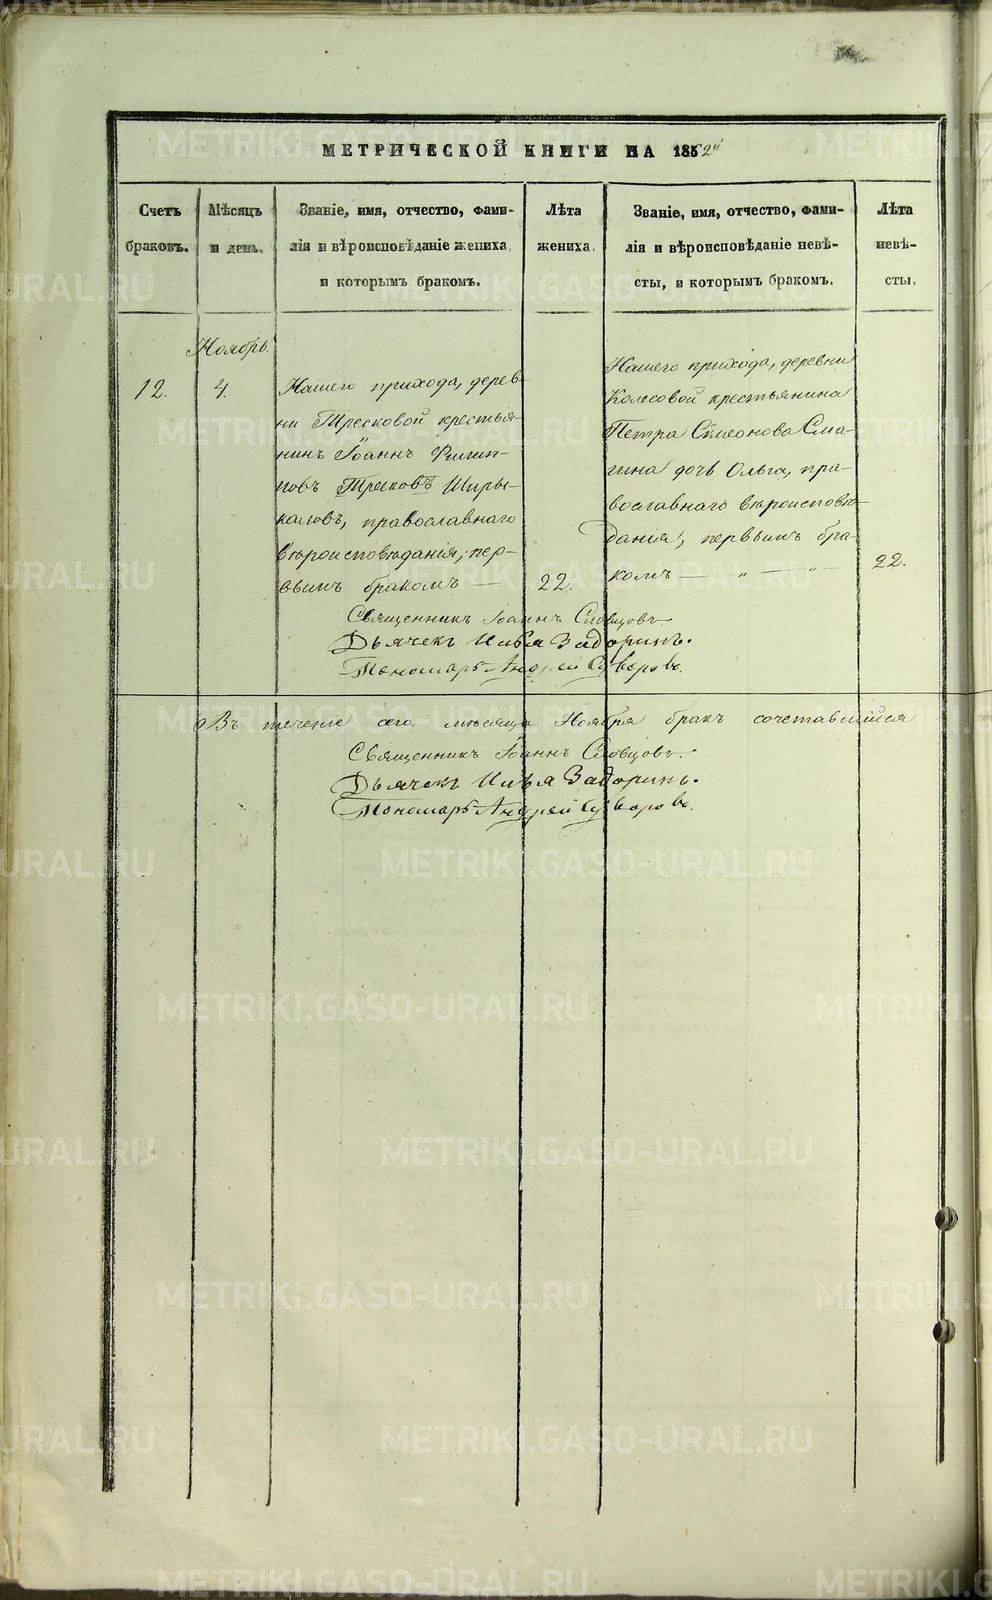 МЕТРИЧЕСКОЙ КНИГИ НА 1852й
Счетъ
браковъ.
Мѣсяцъ
и день.
Званіе, имя, отчество, фами-
лія и вѣроисповѣданіе жениха
и которымъ бракомъ.
Лѣта
жениха.
Званіе, имя, отчество, фами-
лія и вѣроисповѣданіе невѣ-
сты, и которымъ бракомъ.
Лѣта
невѣ-
сты.
Ноябрь.
12.
4.
Нашего прихода, дерев-
ни Тресковой крестья-
нинъ Іоаннъ Филип-
повъ Тресковъ Ширы-
каловъ, православнаго
вѣроисповѣданія, пер-
вымъ бракомъ —
22.
Нашего прихода, деревни
Колесовой крестьянина
Петра Симеонова Сма-
гина дочь Ольга, пра-
вославнаго вѣроисповѣ-
данія, первымъ бра-
комъ — „ — „ —
22.
Священникъ Іоаннъ Словцовъ
Дьячекъ Илья Задоринъ.
Пономарь Андрей Суворовъ.
Въ теченіе сего мѣсяца Ноября бракъ сочетавшійся
Священникъ Іоаннъ Словцовъ.
Дьячекъ Илья Задоринъ.
Пономарь Андрей Суворовъ.
METRIKI.GASO-URAL.RU